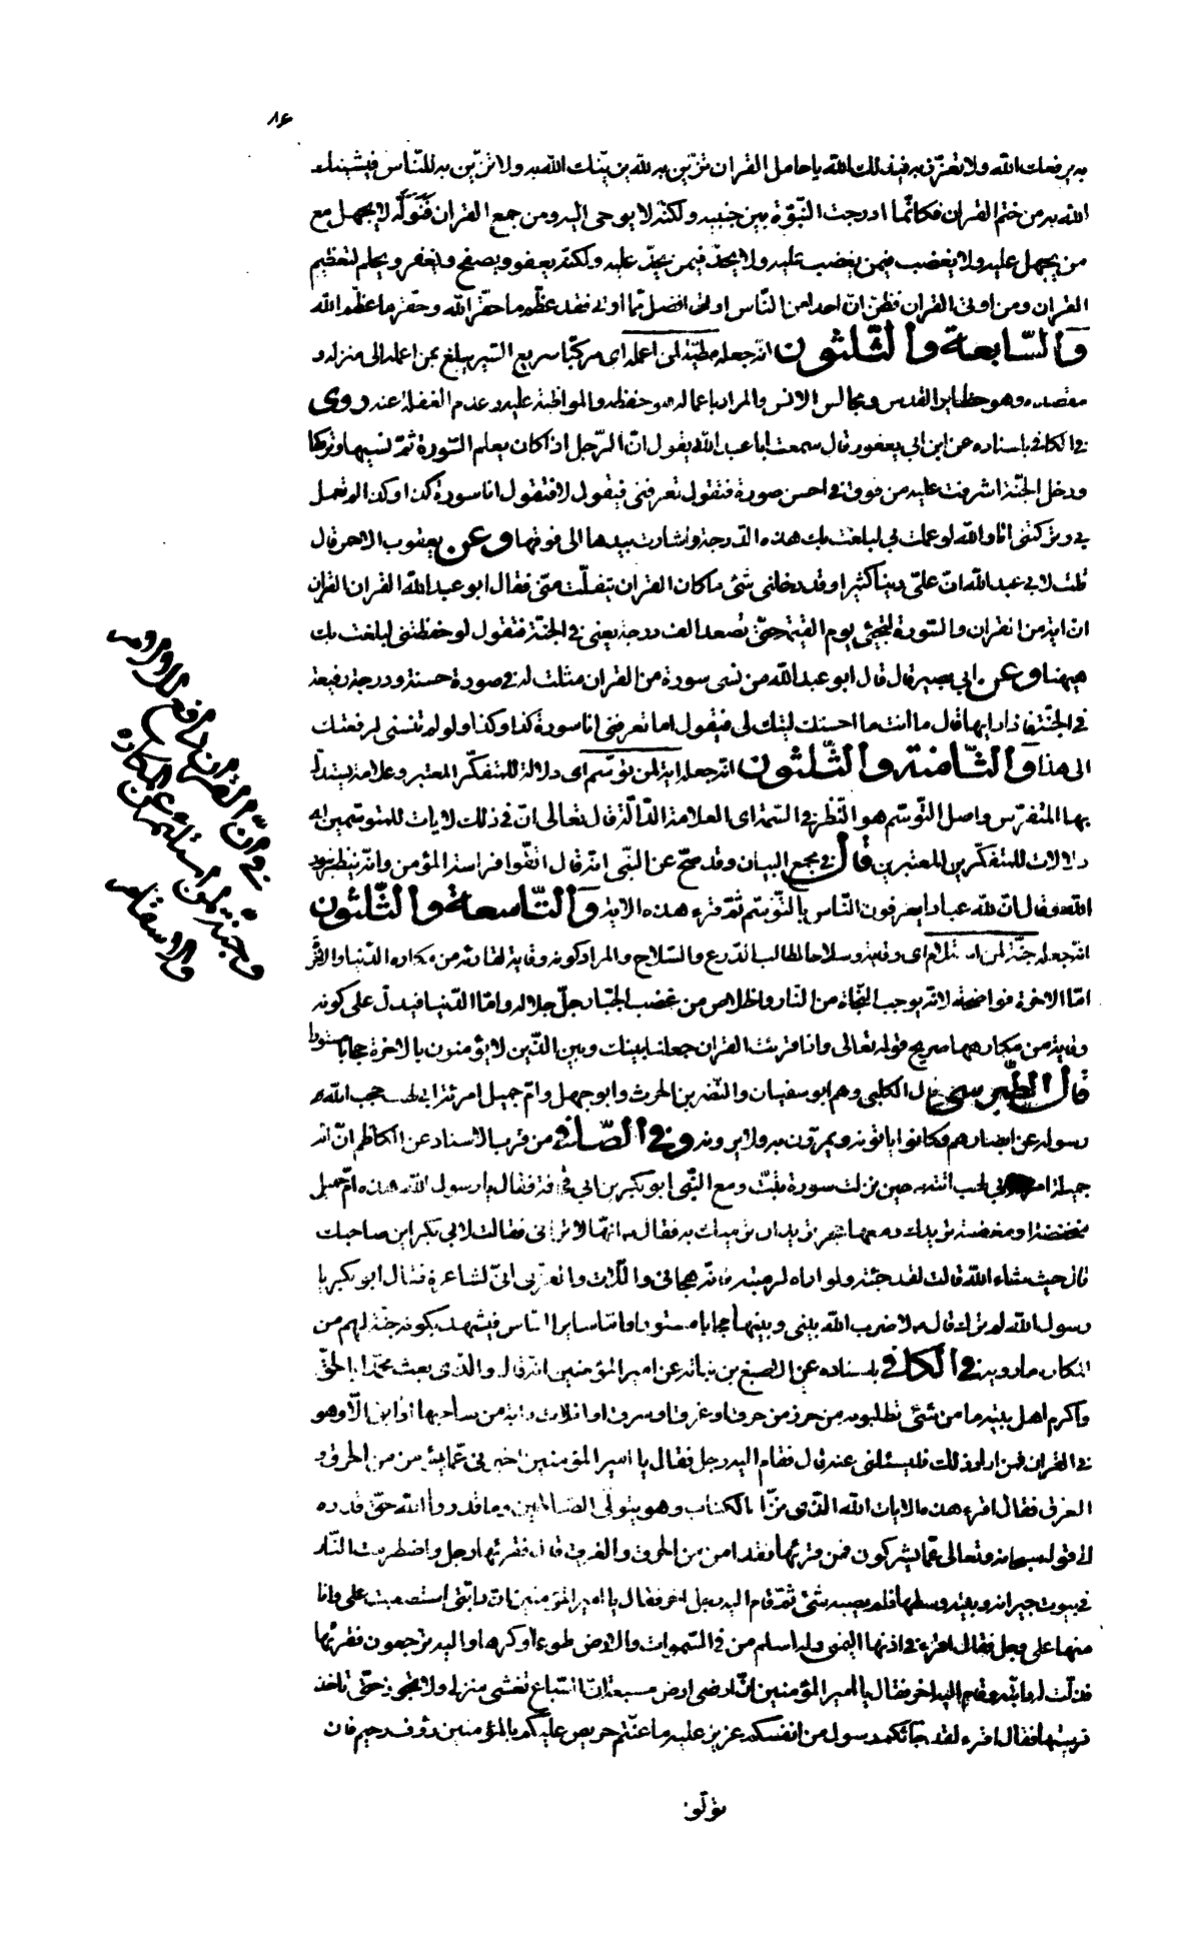 ٨٤
به يرفعك الله ولا تعزّز به فيذلك الله يا حامل القران تزيّن به لله يزيّنك الله به ولا تزيّن به للنّاس فيشينك
الله به من ختم القران فكانّما ادرجت النبّوة بين جنبيه ولكنّه لا يوحى اليه ومن جمع القران فنوله لا يجهل مع
من يجهل عليه ولا يغضب فيمن يغضب عليه ولا يحدّ فيمن يحدّ عليه ولكنّه يعفو ويصفح ويغفر ويحلم لتعظيم
القران ومن اوتى القران فظنّ انّ احدا من النّاس اوتى افضل ممّا اوتى فقد عظّم ما حقّر الله وحقّر ما عظّم الله
والسّابعة والثّلثون انّه جعله مطيّة لمن اعمله اى مركبا سريع السّير يبلغ بمن اعمله الى منزله و
مقصده وهو حظاير القدس ومجالس الانس والمراد باعماله هو حفظه والمواظبة عليه وعدم الغفلة عنه روى
فى الكافى باسناده عن ابن ابى يعفور قال سمعت ابا عبد الله يقول انّ الرّجل اذا كان يعلم السّورة ثمّ نسيها وتركها
ودخل الجنّة اشرفت عليه من فوق فى احسن صورة فتقول تعرفنى فيقول لا فتقول انا سورة كذا وكذا لم تعمل
بى وتركتنى اما والله لو عملت بى لبلغت بك هذه الدّرجة واشارت بيدها الى فوقها وعن يعقوب الاحمر قال
قلت لابى عبد الله انّ علىّ دينا كثيرا وقد دخلنى شئ ما كان القران يتفلّت منّى فقال ابو عبد الله القران القران
انّ الاية من القران والسّورة لتجيئ يوم القيمة حتّى تصعد الف درجة يعنى فى الجنّة فتقول لو حفظتنى لبلغت بك
هيهنا وعن ابى بصير قال قال ابو عبد الله من نسى سورة من القران مثلت له فى صورة حسنة ودرجة رفيعة
فى الجنّة فاذا رايها قال ما انت ما احسنك ليتك لى فيقول اما تعرفنى انا سورة كذا وكذا ولو لم تنسنى لرفعتك
الى هذا والثّامنة والثّلثون انّه جعله اية لمن توسّم اى دلالة للمتفكّر المعتبر وعلامة يستدلّ
بها المتفرّس واصل التّوسّم هو النّظر فى السّمة اى العلامة الدّالّة قال تعالى انّ فى ذلك لايات للمتوسّمين اى
دلالات للمتفكّرين المعتبرين قال فى مجمع البيان وقد صحّ عن النّبى انّه قال اتّقوا فراسة المؤمن فانّه ينظر بنور
الله وقال انّ لله عبادا يعرفون النّاس بالتّوسّم ثمّ قرء هذه الاية والتّاسعة والثّلثون
انّه جعله جنّة لمن استلام اى وقاية وسلاحا لطالب الدّرع والسّلاح والمراد كونه وقاية لقارئه من مكاره الدّنيا والاخرة
امّا الاخرة فواضحة لانّه يوجب النّجاة من النّار والخلاص من غضب الجبّار جلّ جلاله وامّا الدّنيا فيدلّ على كونه
وقاية من مكارهها صريح قوله تعالى واذا قرئت القران جعلنا بينك وبين الّذين لا يؤمنون بالاخرة حجابا مستورا
قال الطّبرسى قال الكلبى وهم ابو سفيان والنّضر بن الحرث وابو جهل وامّ جميل امرئة ابى لهب حجب الله
رسوله عن ابصارهم فكانوا ياتونه ويمرّون به ولا يرونه وفى الصّافى من قرب الاسناد عن الكاظم انّ امّ
جميلة امرئة ابى لهب اتته حين نزلت سورة تبّت ومع النّبى ابو بكر بن ابى قحافة فقال يا رسول الله هذه امّ جميل
محفظة او مغضبة تريدك ومعها حجر تريد ان ترميك به فقال انّها لا ترانى فقالت لابى بكر اين صاحبك
قال حيث شاء الله قالت لقد جئته ولو اراه لرميته فانّه هجانى واللّات والعزّى انّى لشاعرة فقال ابو بكر يا
رسول الله لم ترك قال لا ضرب الله بينى وبينها حجابا مستورا وامّا ساير النّاس فيشهد بكونه جنّة لهم من
المكاره ما رويه فى الكافى باسناده عن الاصبغ بن نباتة عن امير المؤمنين انّه قال والّذى بعث محمّدا بالحقّ
واكرم اهل بيته ما من شئ تطلبونه من حرز من حرق او غرق او سرق او افلات دابة من صاحبها او ابق الّا وهو
فى القران فمن اراد ذلك فليسئلنى عنه قال فقام اليه رجل فقال يا امير المؤمنين اخبرنى عمّا يؤمن من الحرق و
الغرق فقال اقرء هذه الايات الله الّذى نزّل الكتاب وهو يتولّى الصّالحين وما قدروا الله حقّ قدره
الى قوله سبحانه وتعالى عمّا يشركون فمن قرئها فقد امن من الحرق والغرق قال فقرئها رجل واضطرمت النّار
فى بيوت جيرانه وبيته وسطها فلم يصبه شئ ثمّ قام اليه رجل اخر فقال يا امير المؤمنين انّ دابّتى استصعبت علىّ وانا
منها على وجل فقال اقرء فى اذنها اليمنى وله اسلم من فى السّموات والارض طوعا وكرها واليه ترجعون فقرئها
فذلّت له دابّته وقام اليه اخر فقال يا امير المؤمنين انّ ارضى ارض مسبعة انّ السّباع تغشى منزلى ولا تجوز حتّى تاخذ
فريستها فقال اقرء لقد جائكم رسول من انفسكم عزيز عليه ما عنتّم حريص عليكم بالمؤمنين رؤف رحيم فان
تولّوا
فى انّ القران رافع للاوامر
وجنة لمن استلئم عن المكاره
والاسقام